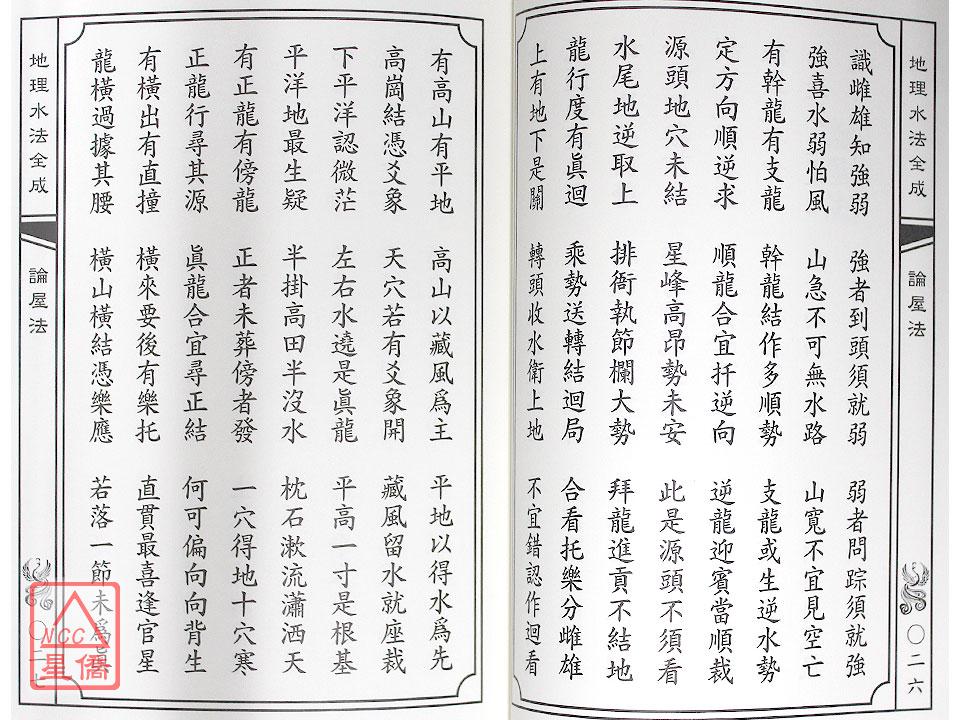 地理水法全成
論屋法
〇二六
識雌雄知強弱 強者到頭須就弱 弱者問踪須就強
強喜水弱怕風 山急不可無水路 山寬不宜見空亡
有幹龍有支龍 幹龍結作多順勢 支龍或生逆水勢
定方向順逆求 順龍合宜扦逆向 逆龍迎賓當順裁
源頭地穴未結 星峰高昂勢未安 此是源頭不須看
水尾地逆取上 排衙執節欄大勢 拜龍進貢不結地
龍行度有眞迴 乘勢送轉結迴局 合看托樂分雌雄
上有地下是關 轉頭收水衛上地 不宜錯認作迴看
有高山有平地 高山以藏風爲主 平地以得水爲先
高崗結憑爻象 天穴若有爻象開 藏風留水就座裁
下平洋認微茫 左右水遶是眞龍 平高一寸是根基
平洋地最生疑 半掛高田半沒水 枕石漱流瀟洒天
有正龍有傍龍 正者未葬傍者發 一穴得地十穴寒
正龍行尋其源 眞龍合宜尋正結 何可偏向向背生
有橫出有直撞 橫來要後有樂托 直貫最喜逢官星
龍橫過據其腰 橫山橫結憑樂應 若落一節未爲
地理水法全成
論屋法
〇二
NCC
星僑